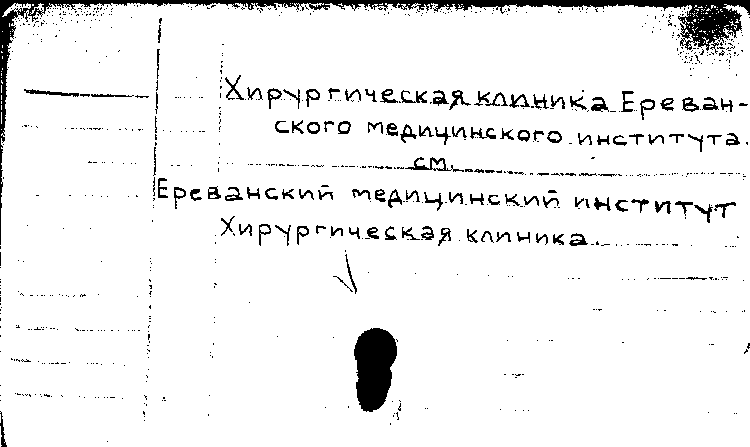 Хирургическая клиника Ереван-
ского медицинского института.
см.
Ереванский медицинский институт
Хирургическая клиника.